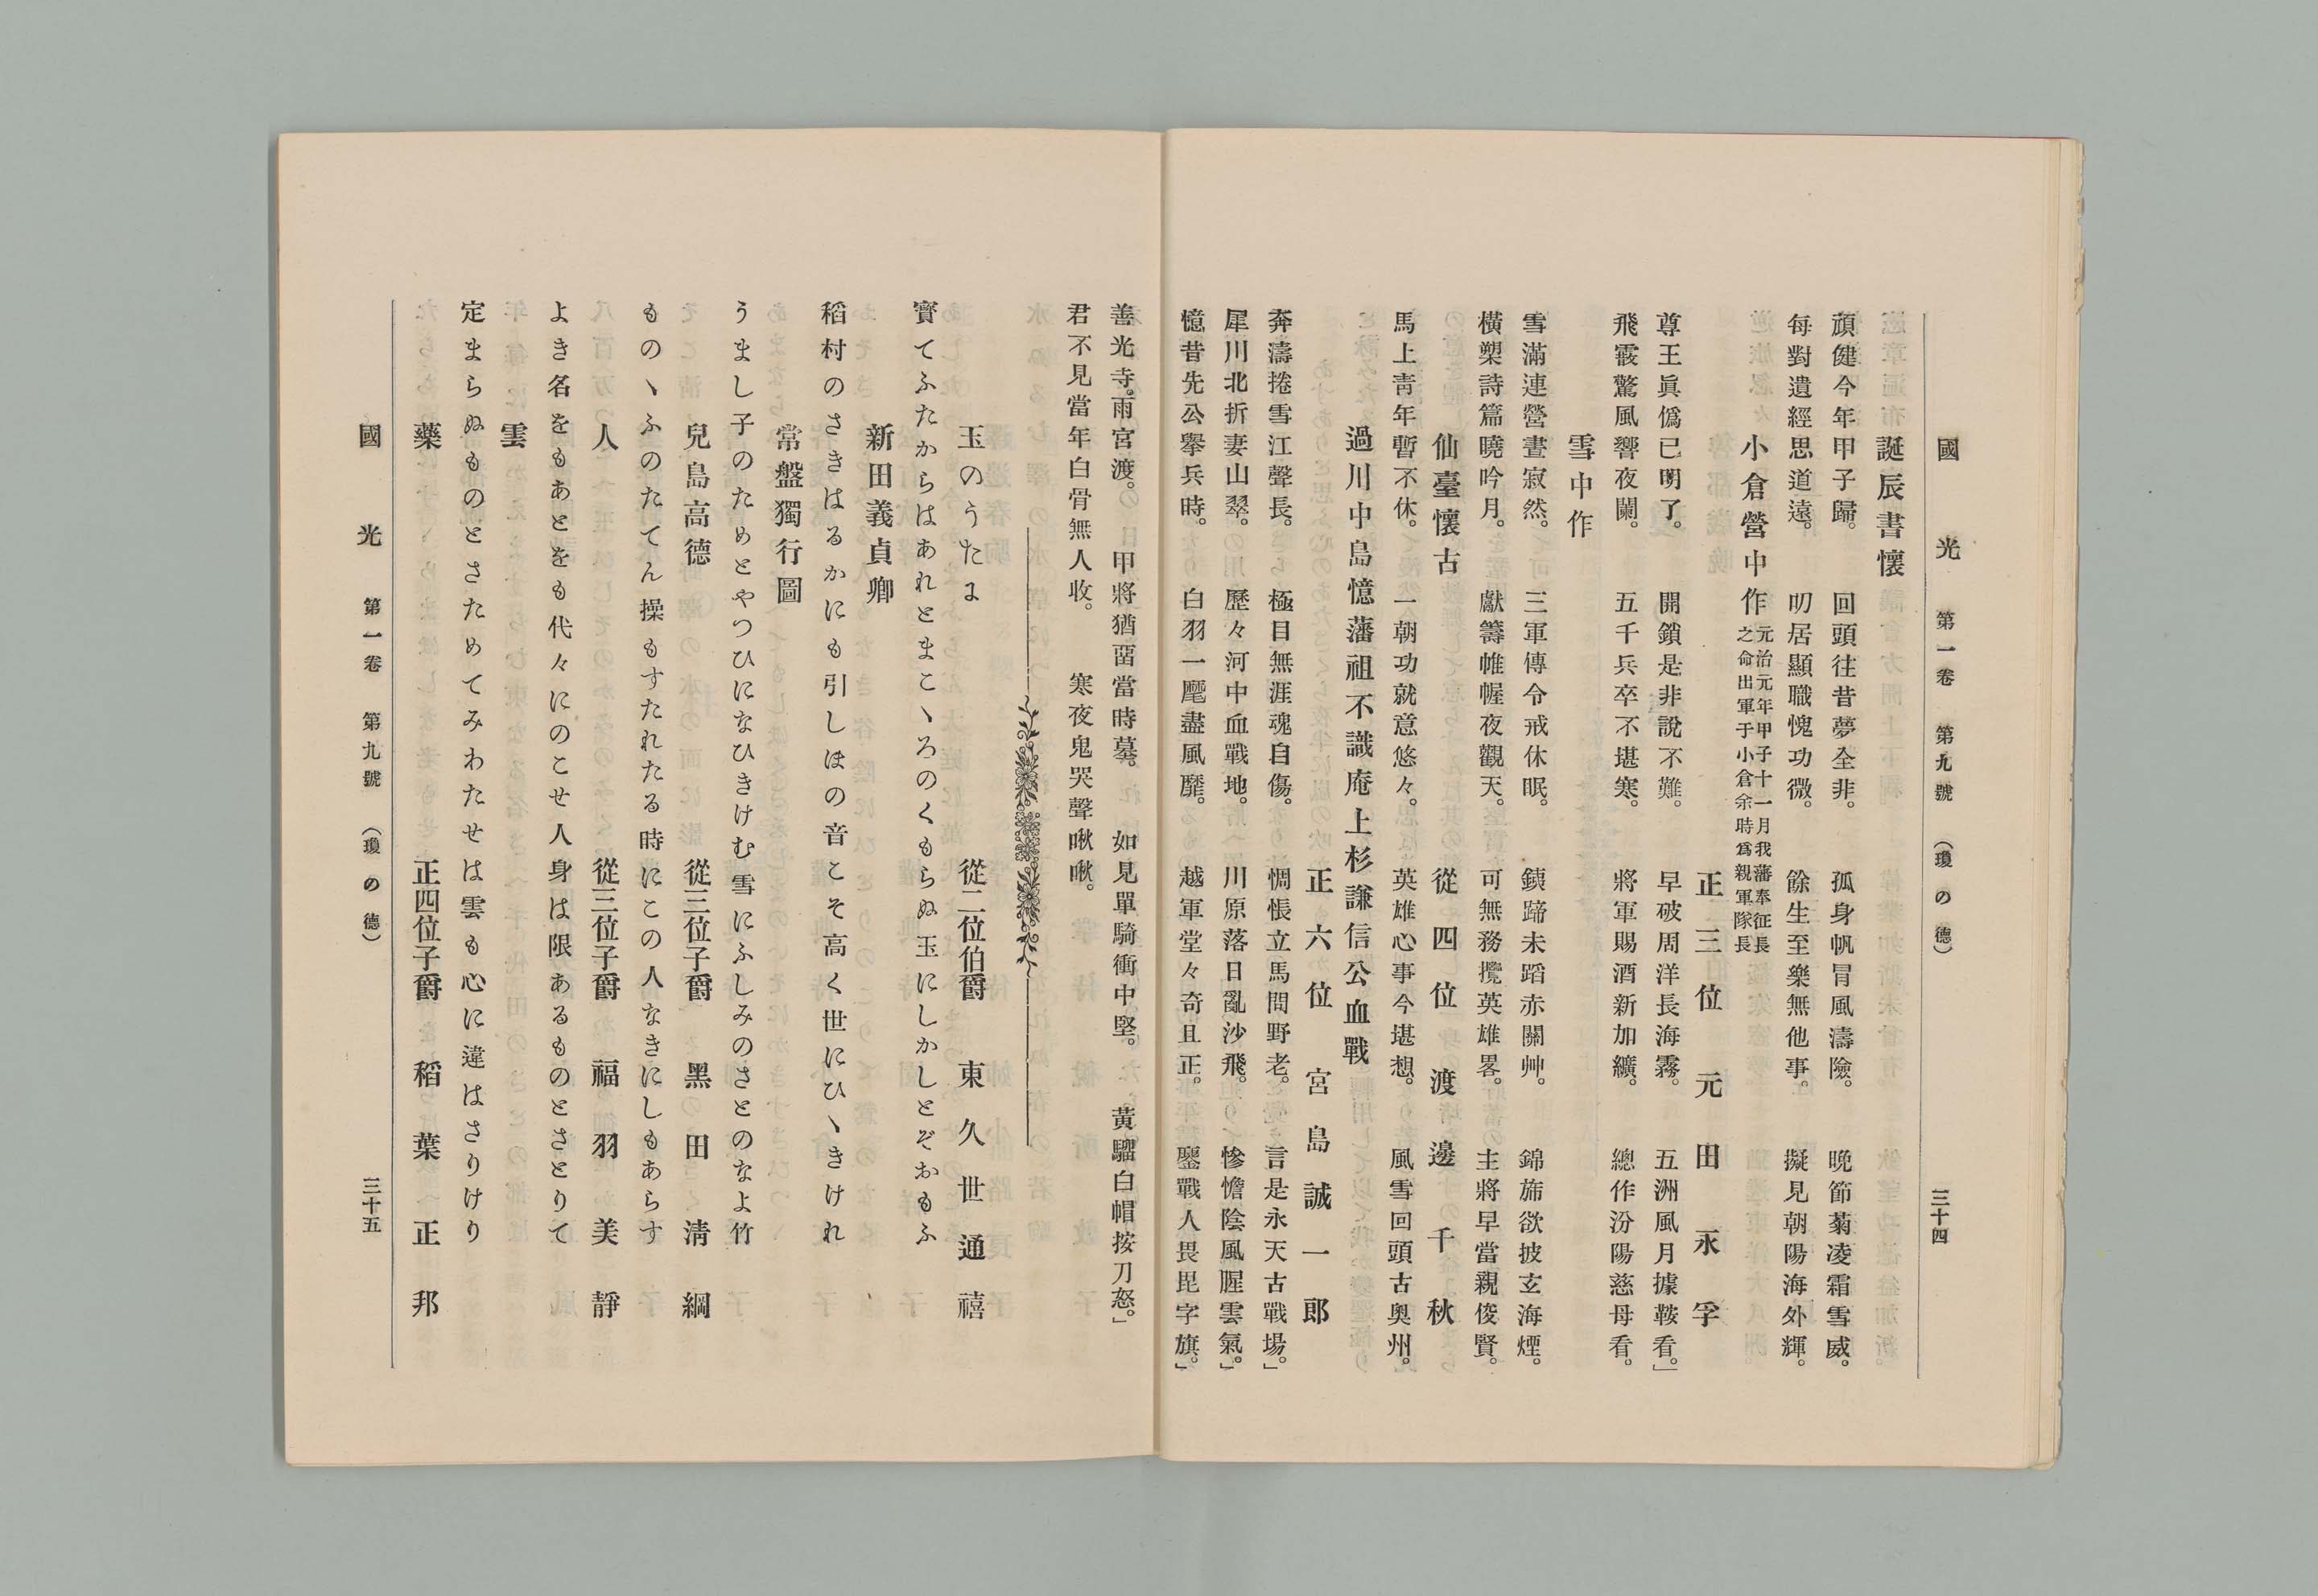 國光 第一卷 第九號 (瓊の德) 三十四
誕辰書懷
頑健今年甲子歸。 回頭往昔夢全非。 孤身帆冒風濤險。 晚節菊凌霜雪威。
每對遺經思道遠。 叨居顯職愧功微。 餘生至樂無他事。 擬見朝陽海外輝。
小倉營中作 元治元年甲子十一月我藩奉征長之命出軍于小倉余時爲親軍隊長
正三位 元田永孚
尊王眞僞已明了。 開鎖是非說不難。 早破周洋長海霧。 五洲風月據鞍看。」
飛霰驚風響夜闌。 五千兵卒不堪寒。 將軍賜酒新加纊。 總作汾陽慈母看。
雪中作
雪滿連營晝寂然。 三軍傳令戒休眠。 鐵蹄未蹈赤關艸。 錦旆欲披玄海煙。
橫槊詩篇曉吟月。 獻籌帷幄夜觀天。 可無務攬英雄畧。 主將早當親俊賢。
仙臺懷古 從四位 渡邊千秋
馬上靑年暫不休。 一朝功就意悠々。 英雄心事今堪想。 風雪回頭古奧州。
過川中島憶藩祖不識庵上杉謙信公血戰
正六位 宮島誠一郎
奔濤捲雪江聲長。 極目無涯魂自傷。 惆悵立馬問野老。 言是永天古戰場。」
犀川北折妻山翠。 歷々河中血戰地。 川原落日亂沙飛。 慘憺陰風腥雲氣。」
憶昔先公擧兵時。 白羽一麾盡風靡。 越軍堂々奇且正。 鏖戰人畏毘字旗。」
善光寺。雨宮渡。 甲將猶畱當時墓。 如見單騎衝中堅。 黃騮白帽按刀怒。」
君不見當年白骨無人收。 寒夜鬼哭聲啾啾。
玉のうたに 從二位伯爵 東久世通禧
寶てふたからはあれとまこゝろのくもらぬ玉にしかしとぞおもふ
新田義貞卿
稻村のさきはるかにも引しほの音こそ高く世にひゝきけれ
常盤獨行圖
うまし子のためとやつひになひきけむ雪にふしみのさとのなよ竹
兒島高德 從三位子爵 黑田淸綱
ものゝふのたてん操もすたれたる時にこの人なきにしもあらす
人 從三位子爵 福羽美靜
よき名をもあとをも代々にのこせ人身は限あるものとさとりて
雲
定まらぬものとさためてみわたせは雲も心に違はさりけり
藥 正四位子爵 稻葉正邦
國光 第一卷 第九號 (瓊の德) 三十五